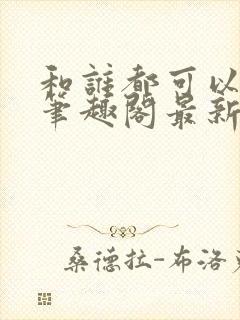 和誰都可以
筆趣閣最新
桑德拉-布洛